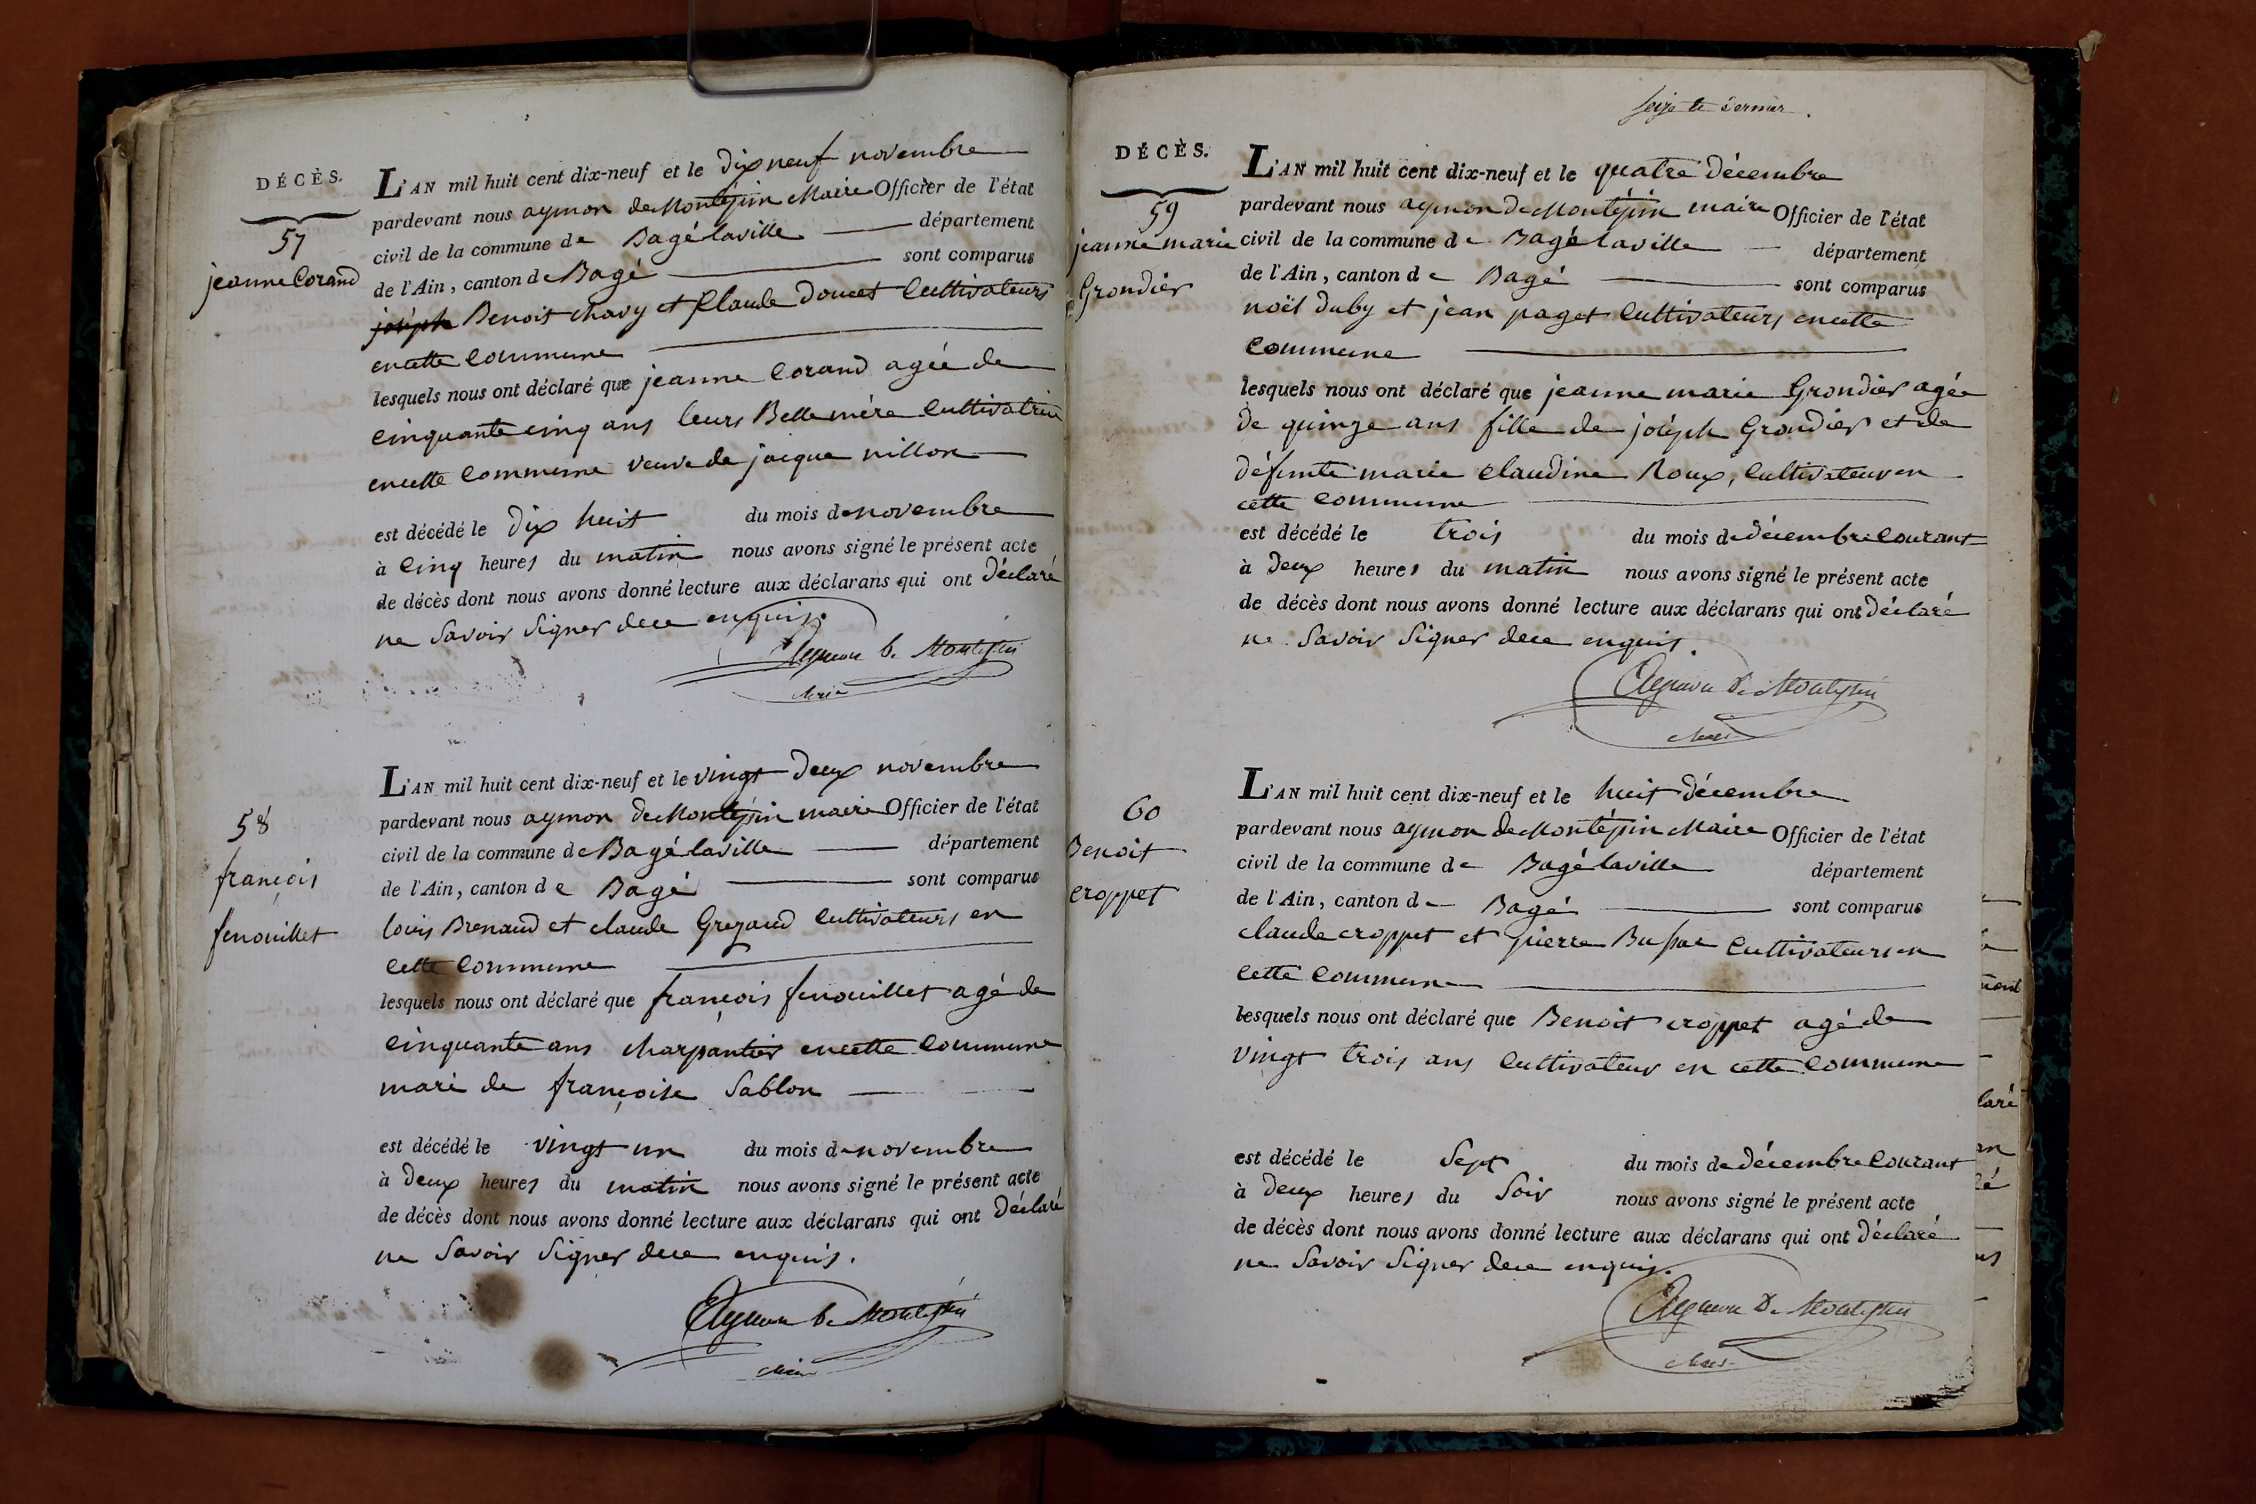 DÉCÈS.
57
jeanne Corand
L'AN mil huit cent dix-neuf et le dix neuf novembre
pardevant nous aymon de Montépin Maire Officier de l'état
civil de la commune de Bagé laville département
de l'Ain, canton de Bagé sont comparus
joséph Benoit chavy et Claude doucet Cultivateurs
encette Commune
lesquels nous ont déclaré que jeanne Corand agée de
cinquante cinq ans leurs Belle mère Cultivatrice
encette Commune veuve de jacque nillon
est décédé le dix huit du mois de novembre
à Cinq heures du matin nous avons signé le présent acte
de décès dont nous avons donné lecture aux déclarans qui ont déclaré
ne Savoir Signer dece enquis.
Aymon De Montépin
Maire
58
françois
fenouillet
L'AN mil huit cent dix-neuf et le vingt deux novembre
pardevant nous aymon de Montépin maire Officier de l'état
civil de la commune de Bagé laville département
de l'Ain, canton de Bagé sont comparus
louis Brenaud et claude Grezaud Cultivateurs en
cette Commune
lesquels nous ont déclaré que françois fenouillet agé de
cinquante ans charpantier encette Commune
mari de françoise Sablon
est décédé le vingt un du mois de novembre
à deux heures du matin nous avons signé le présent acte
de décès dont nous avons donné lecture aux déclarans qui ont déclaré
ne Savoir Signer dece enquis.
Aymon De Montépin
Maire
Seize et dernier.
DÉCÈS.
59
jeanne marie
Grondier
L'AN mil huit cent dix-neuf et le quatre décembre
pardevant nous aymon de Montépin maire Officier de l'état
civil de la commune de Bagé laville département
de l'Ain, canton de Bagé sont comparus
noël duby et jean paget Cultivateurs encette
Commune
lesquels nous ont déclaré que jeanne marie Grondier agée
de quinze ans fille de joséph Grondier et de
défunte marie Claudine Roux, Cultivateur en
cette Commune
est décédé le trois du mois de décembre Courant
à deux heures du matin nous avons signé le présent acte
de décès dont nous avons donné lecture aux déclarans qui ont déclaré
ne Savoir Signer dece enquis.
Aymon De Montépin
Maire
60
Benoit
croppet
L'AN mil huit cent dix-neuf et le huit décembre
pardevant nous aymon de Montépin Maire Officier de l'état
civil de la commune de Bagé laville département
de l'Ain, canton de Bagé sont comparus
claude croppet et pierre Cultivateurs en
cette Commune
lesquels nous ont déclaré que Benoit croppet agé de
vingt trois ans Cultivateur en cette Commune
est décédé le Sept du mois de décembre Courant
à deux heures du Soir nous avons signé le présent acte
de décès dont nous avons donné lecture aux déclarans qui ont déclaré
ne Savoir Signer dece enquis.
Aymon De Montépin
Maire